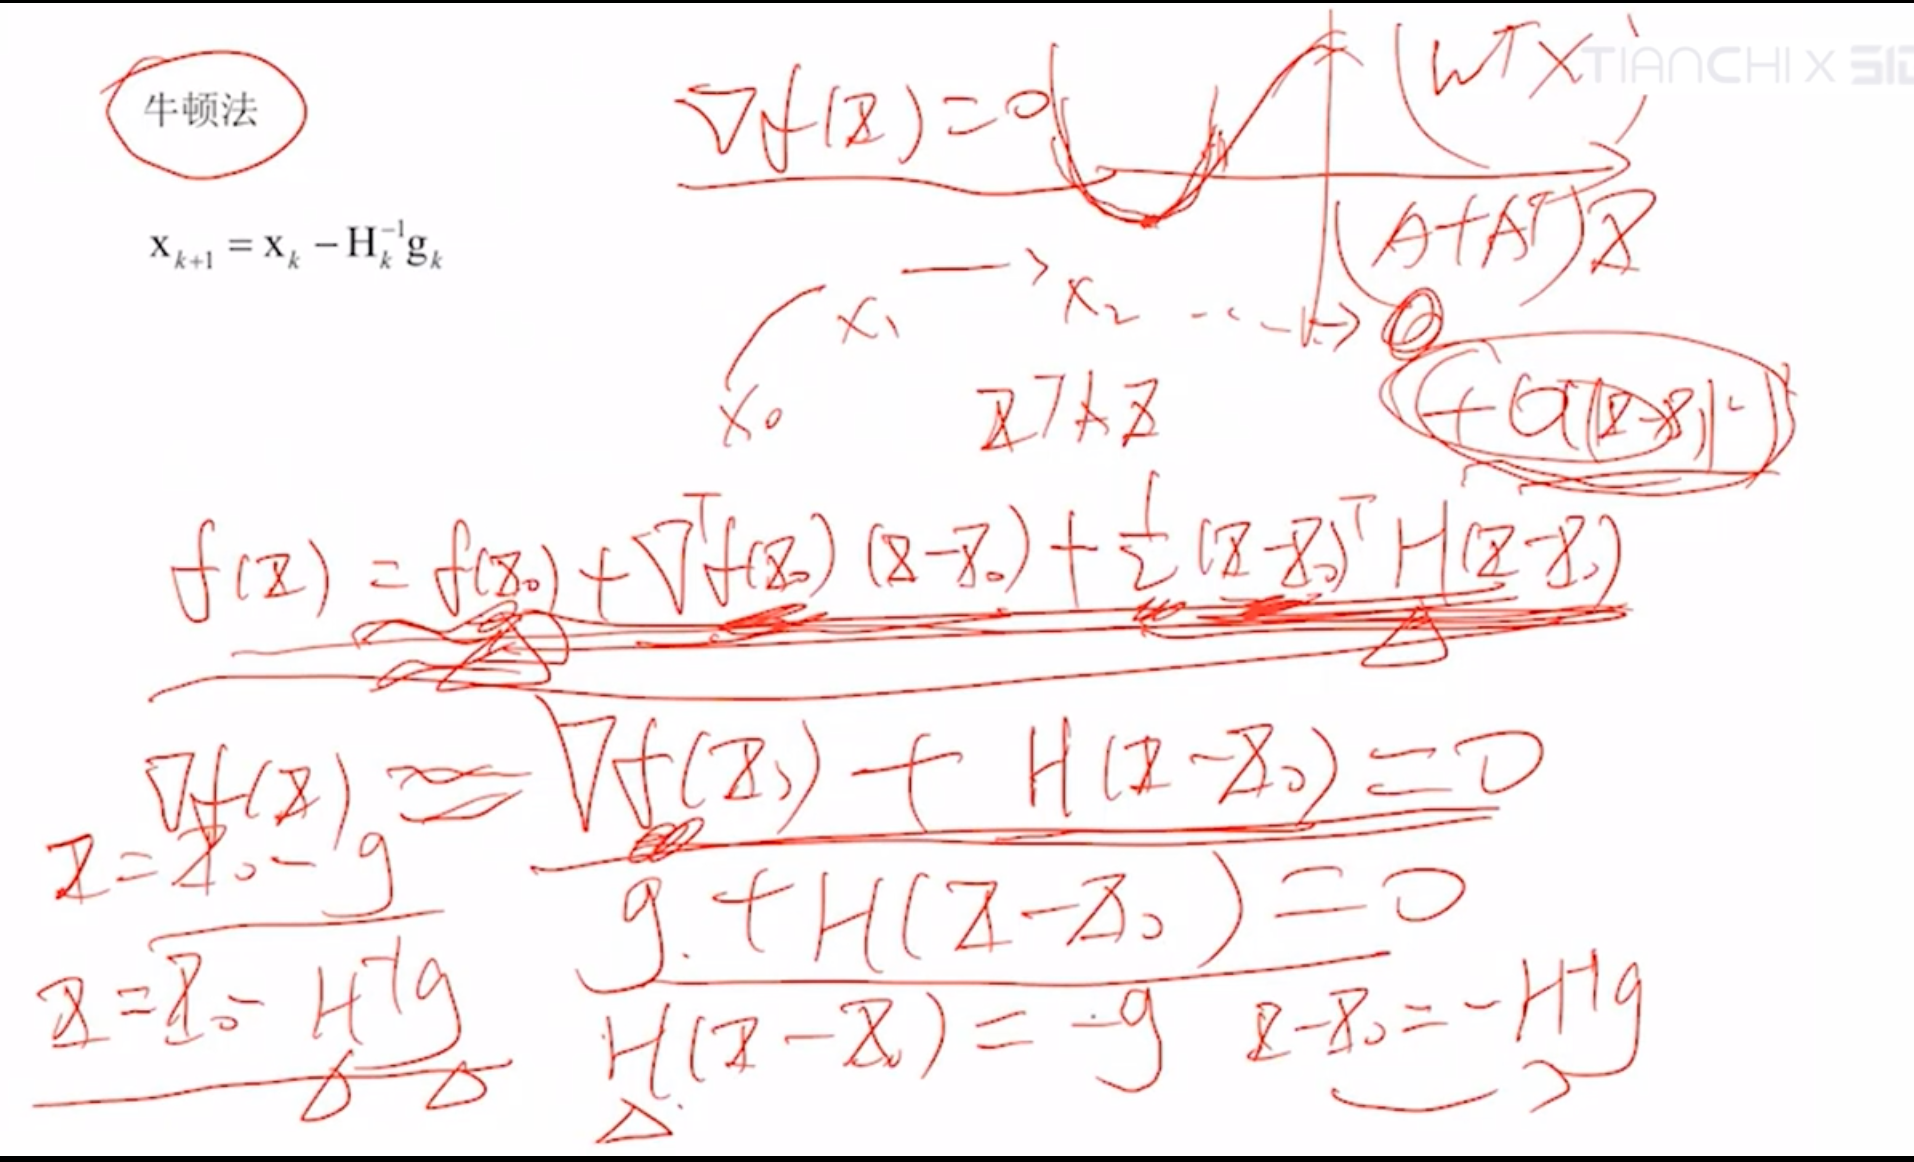 牛顿法
x_{k+1} = x_k − H_k^{-1} g_k
TIANCHI X
∇f(x) = 0
(w^T x)'
(A+A^T)x
x_0 x_1 → x_2 ---→ 0
x^T A x
+ o(‖x-x_0‖^2)
f(x) = f(x_0) + ∇^T f(x_0) (x-x_0) + 1/2 (x-x_0)^T H(x-x_0)
∇f(x) ≈ ∇f(x_0) + H(x-x_0) = 0
x = x_0 - g
g + H(x-x_0) = 0
x = x_0 - H^{-1}g
H(x-x_0) = -g
x-x_0 = -H^{-1}g